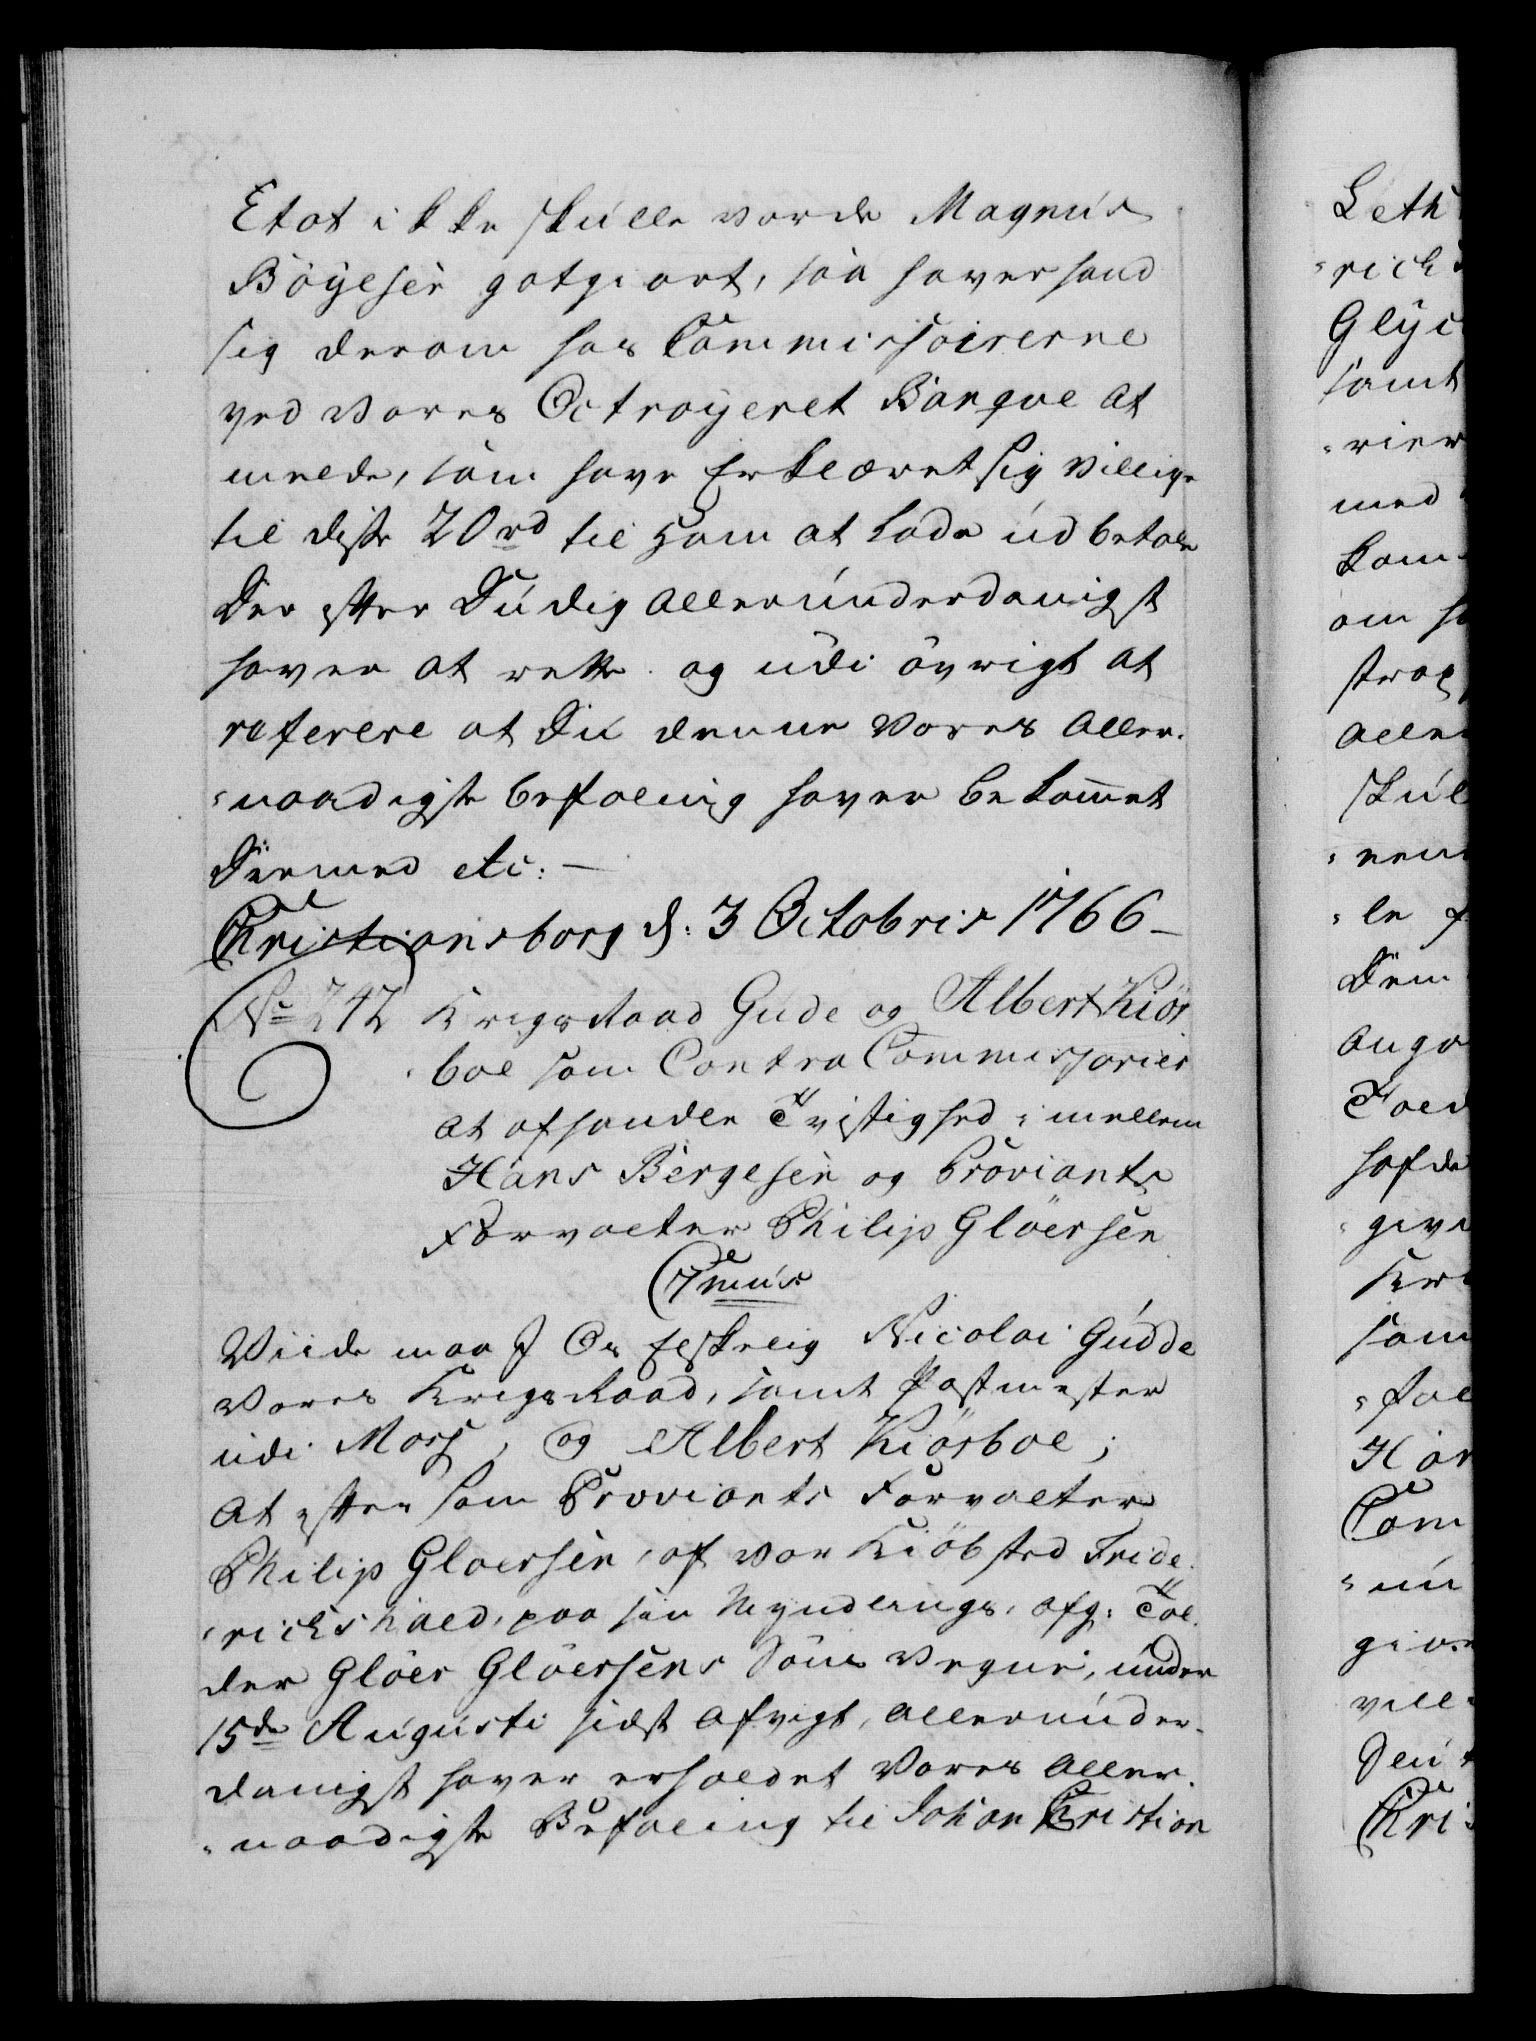 Etat ikke skulle vorde Magnus
Böyesen gotgiort, saa haver hand
sig derom hos Commissairerne
ved Vores Octroyeret Banqve at
melde, som have Erklæret sig villige
til disse 20 rd til ham at lade udbetale
Der efter Du dig allerunderdanigst
haver at rette. og udi övrigt at
referere at Du denne Vores Aller-
"naadigste befaling haver bekommet
Dermed etc: —
Christiansborg d: 3 Octobris 1766 —
No 242 Krigs Raad Gude og Albert Kiös
boe som Contra Commissarier
at afhandle Tvistighed imellem
Hans Børgesen og Proviant-
Forvalter Philip Glöersen
C 7mus
Viide maa I Os Elskelig Nicolai Gudde
Vores Krigs Raad, samt Postmester
udi Moss, og Albert Kiösboe;
At efter som Proviants Forvalter
Philip Gloersen, af vor Kiöbsted Fride-
"richshald, paa sin Myndlings, afg: Tol-
der Glöer Glöersens Söns Vegne, under
15de Augusti sidst afvigt, allerunder-
danigst haver erholdet Vores Aller-
"naadigste Befaling til Johan Christian
Leth
"rich
samt
"rier
med
kom
om
strax
alle
skul
"le
Dem
hafde
"give
som
"fal
Com
gior
vill
Den
Chri